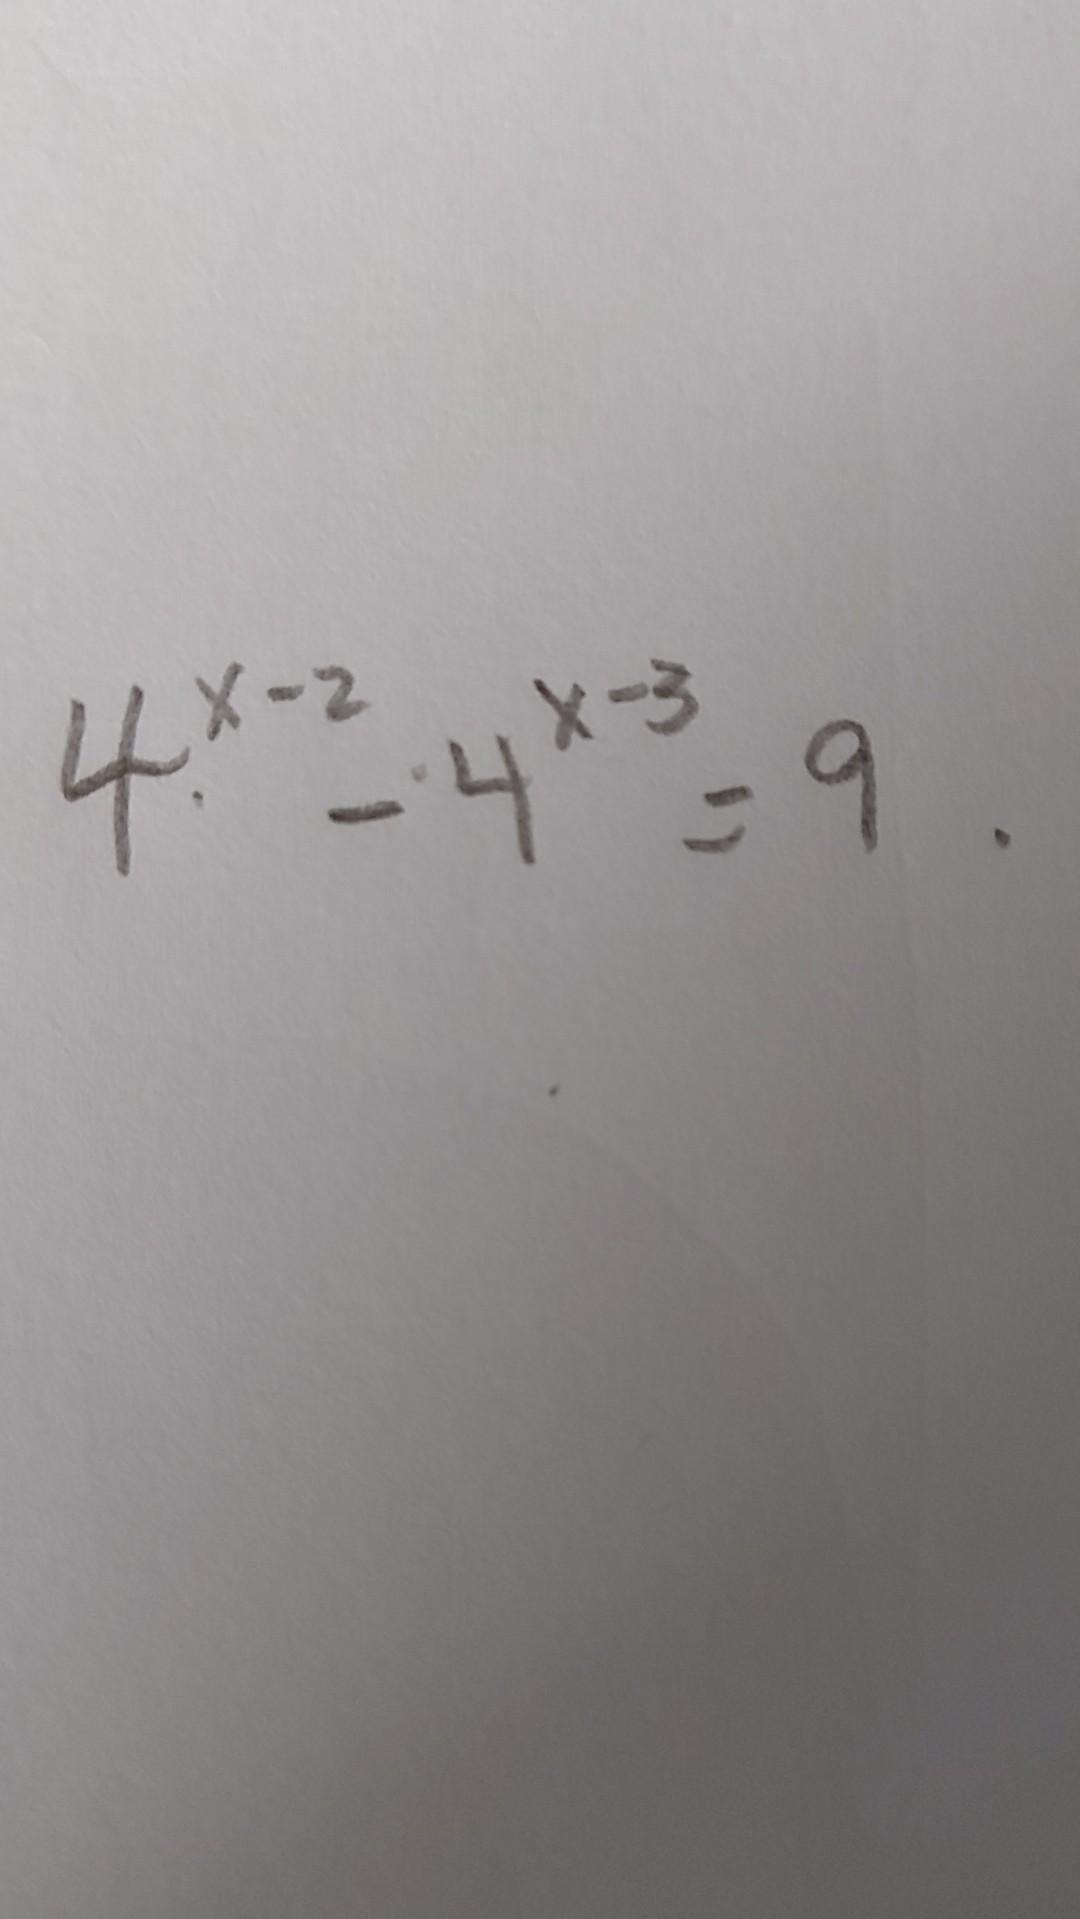 4^{x-2} - 4^{x-3} = 9.